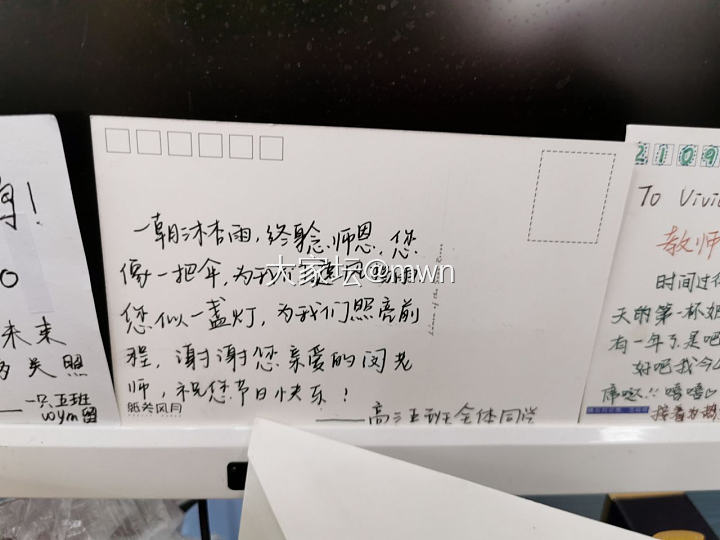 未来
关照
一只五班
wym留
一朝沐杏雨，终身念师恩，您
像一把伞，为我们遮风挡雨
您似一盏灯，为我们照亮前
程，谢谢您亲爱的闵老
师，祝您节日快乐！
纸答风月
——高三五班全体同学
大家坛@mwn
2109
To Vivi
教师
时间过
天的第一杯奶
有一年了是吧
好吧我今
席哒!! 嘻嘻
接着为